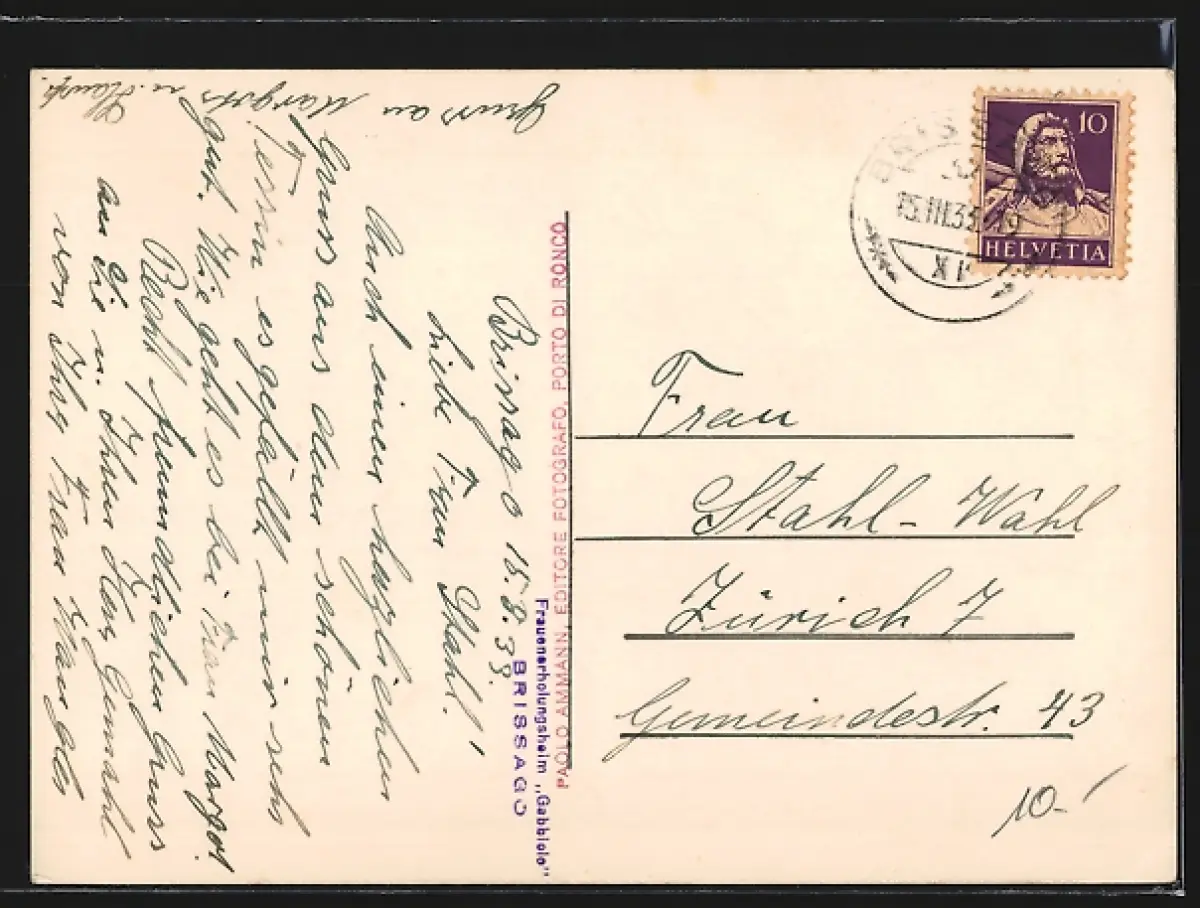 Brissago 15.8.33.
Liebe Frau Stahl!
Auch einen herzlichen
Gruss aus dem schönen
Tessin es gefällt mir sehr
gut. Wie geht es bei Frau Margot.
Recht freundlichen Gruss
an Sie u. Ihren Herr Gemahl
von Ihrer Frau
Gruss an
Margot u.
Frauenerholungsheim „Gabbiolo"
BRISSAGO
PAOLO AMMANN, EDITORE FOTOGRAFO, PORTO DI RONCO
10
HELVETIA
15.III.33.
XI
Frau
Stahl-Wahl
Zürich 7
Gemeindestr. 43
10.-